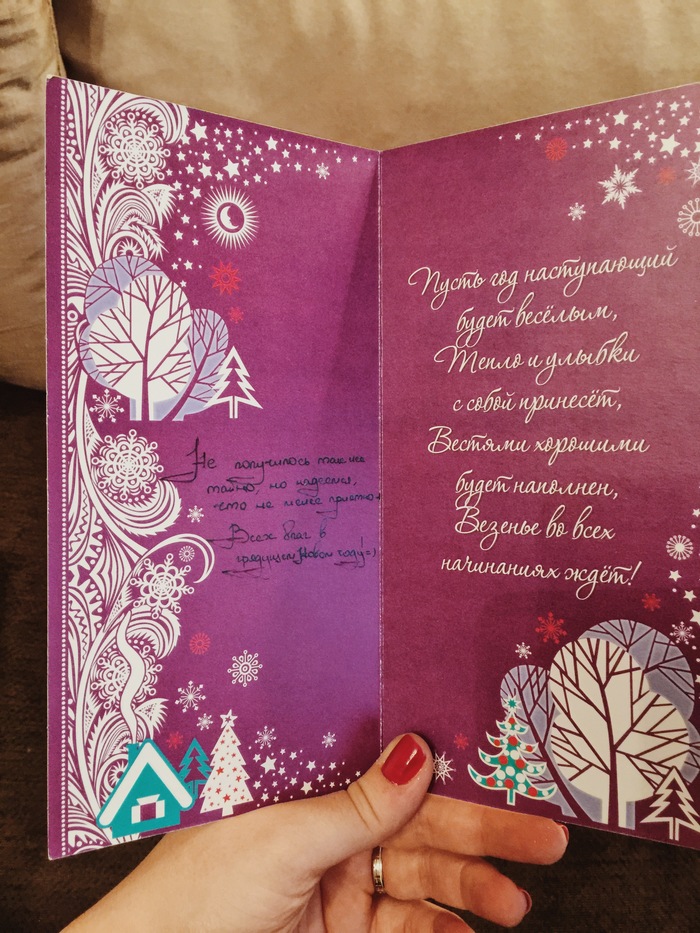 Не получилось так же
тайно, но надеемся,
что не менее приятно
Всех благ в
грядущем Новом году! =)
Пусть год наступающий
будет весёлым,
Тепло и улыбки
с собой принесёт,
Вестями хорошими
будет наполнен,
Везенье во всех
начинаниях ждёт!